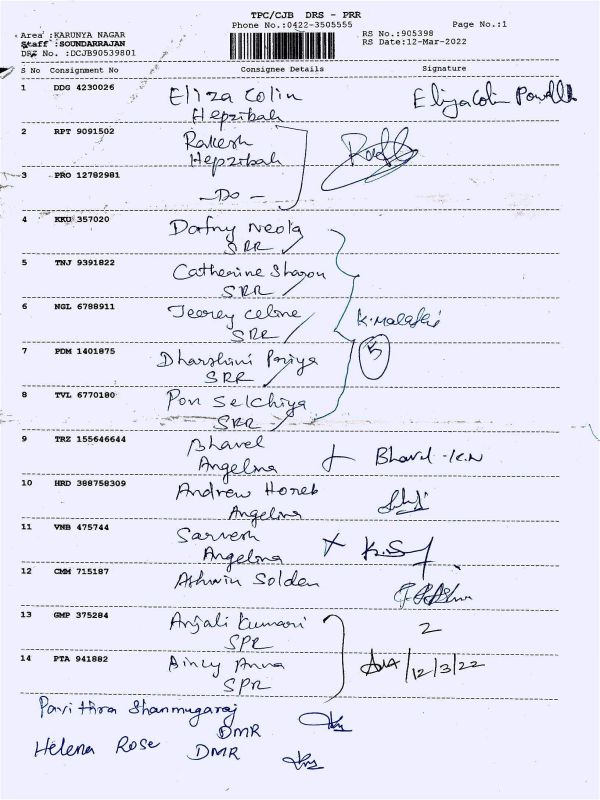 TPC/CJB DRS - PRR
Phone No.:0422-3505555
Page No.:1
Area :KARUNYA NAGAR
RS No.:905398
Staff :SOUNDARRAJAN
RS Date:12-Mar-2022
DRS No. :DCJB90539801
S No Consignment No Consignee Details Signature
1 DDG 4230026 Eliza Colin Elizacolin
Hepzibah
2 RPT 9091502 Rakesh
Hepzibah
3 PRO 12782981
- Do -
4 KKU 357020 Dafny Neola
SRR
5 TNJ 9391822 Catherine Sharon
SRR
6 NGL 6788911 Celine K.Malathi
SRR
7 PDM 1401875 Dharshini Priya 5
SRR
8 TVL 6770180 Pon Selchiya
SRR
9 TRZ 155646644 Bharel
Angelina Bharel .K.N
10 HRD 388758309 Andrew Honeb
Angelina
11 VNB 475744 Sarvesh
Angelina
12 CMM 715187 Ashwin Solden
13 GMP 375284 Anjali Kumari 2
SPR
14 PTA 941882 Bincy Anna 12/3/22
SPR
Pavithra Shanmugaraj
DMR
Helena Rose DMR